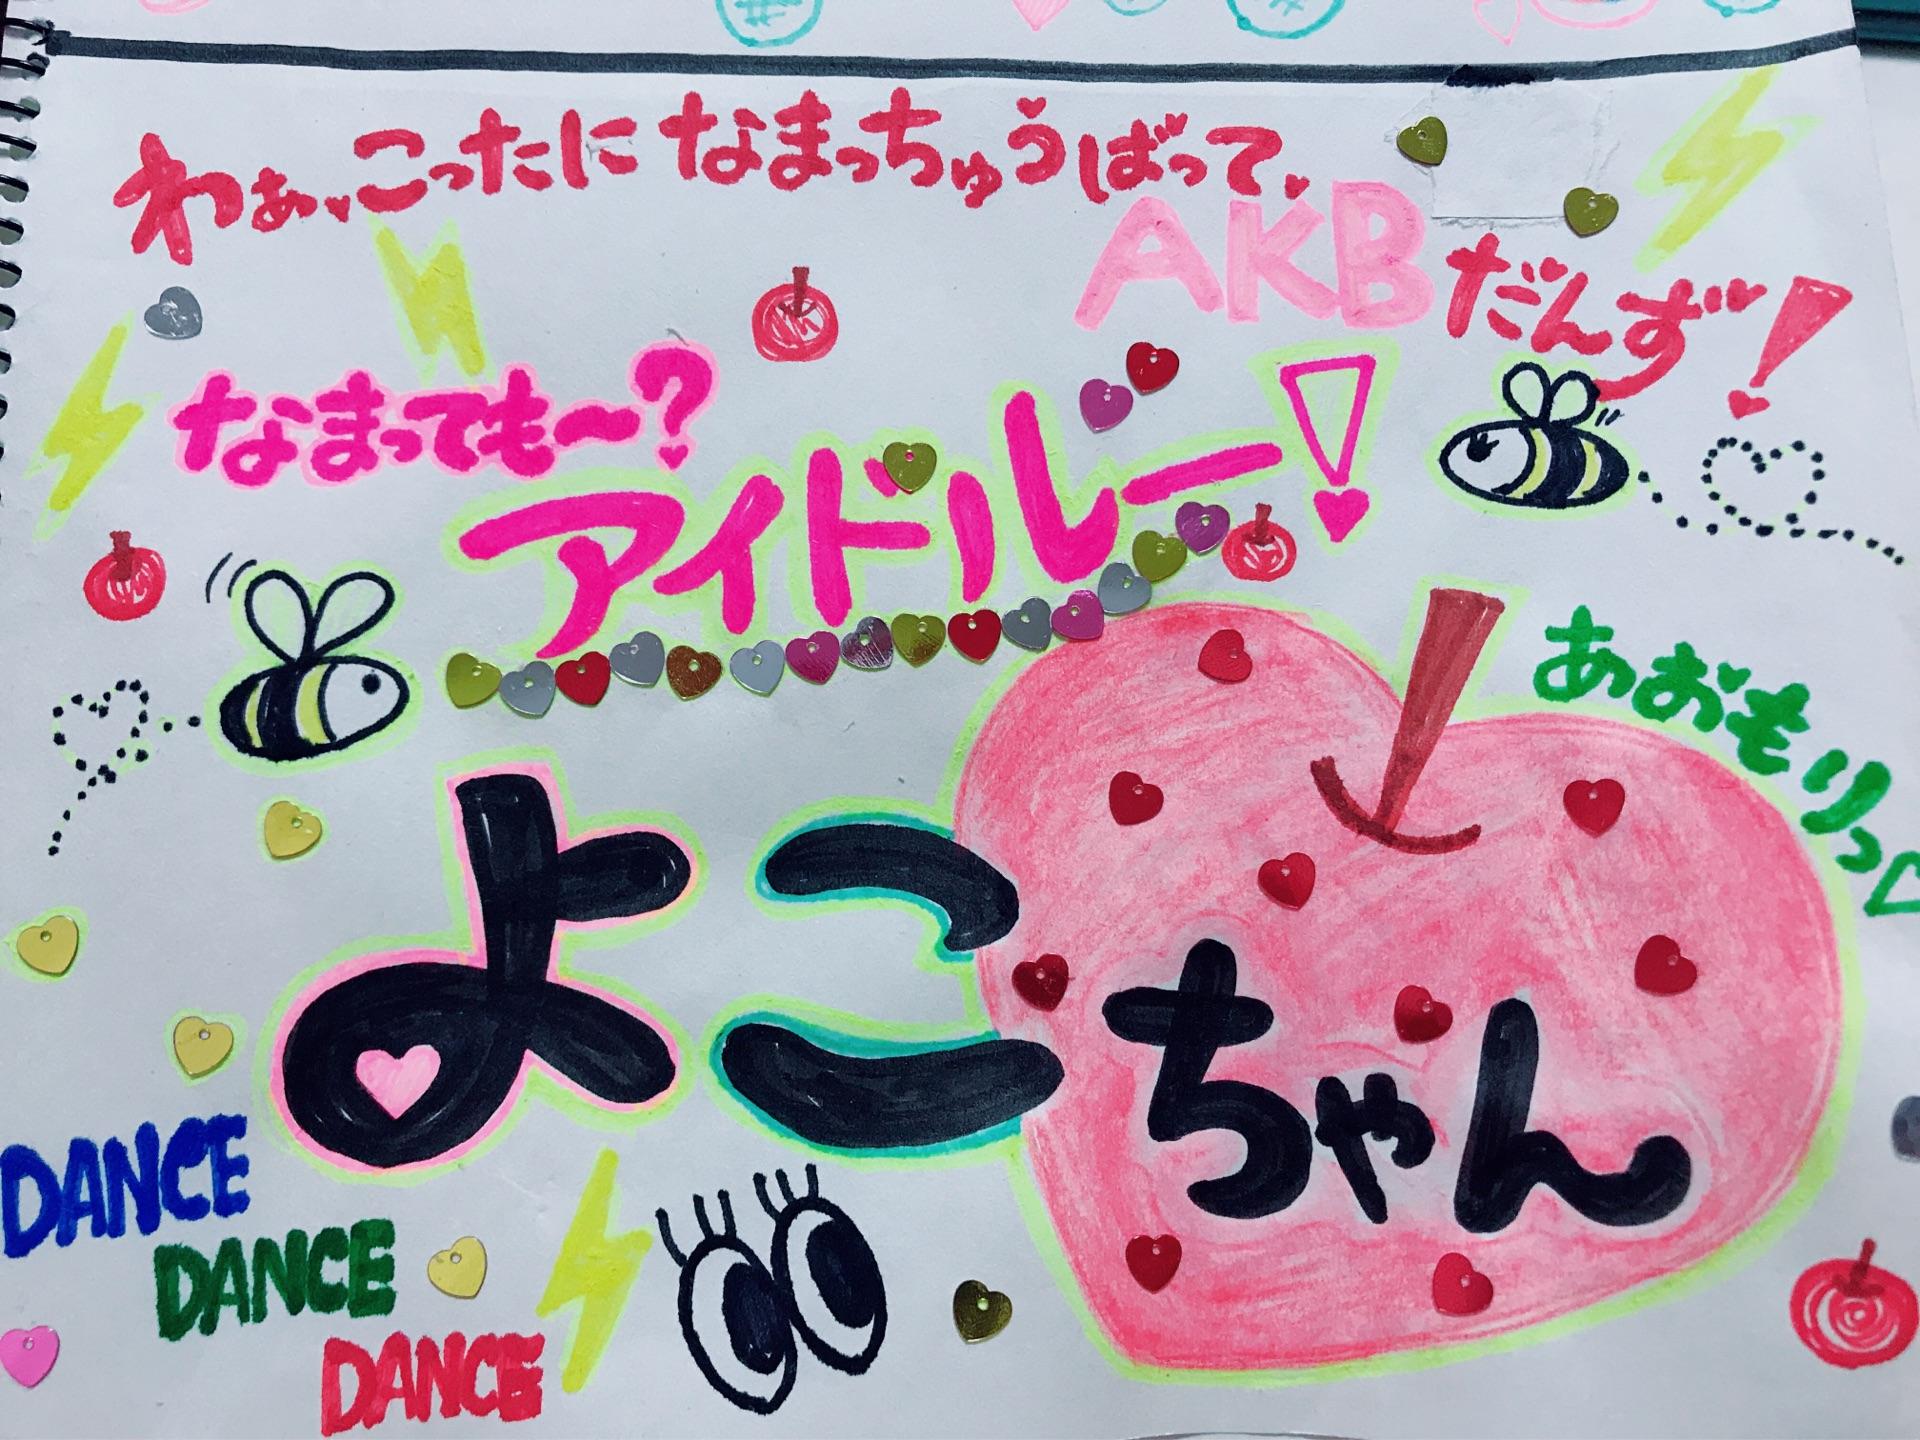 わぁ、こったに なまっちゅうばって、
AKBだんず!
なまっても〜?
アイドルー!
あおもりっ♡
よこちゃん
DANCE
DANCE
DANCE